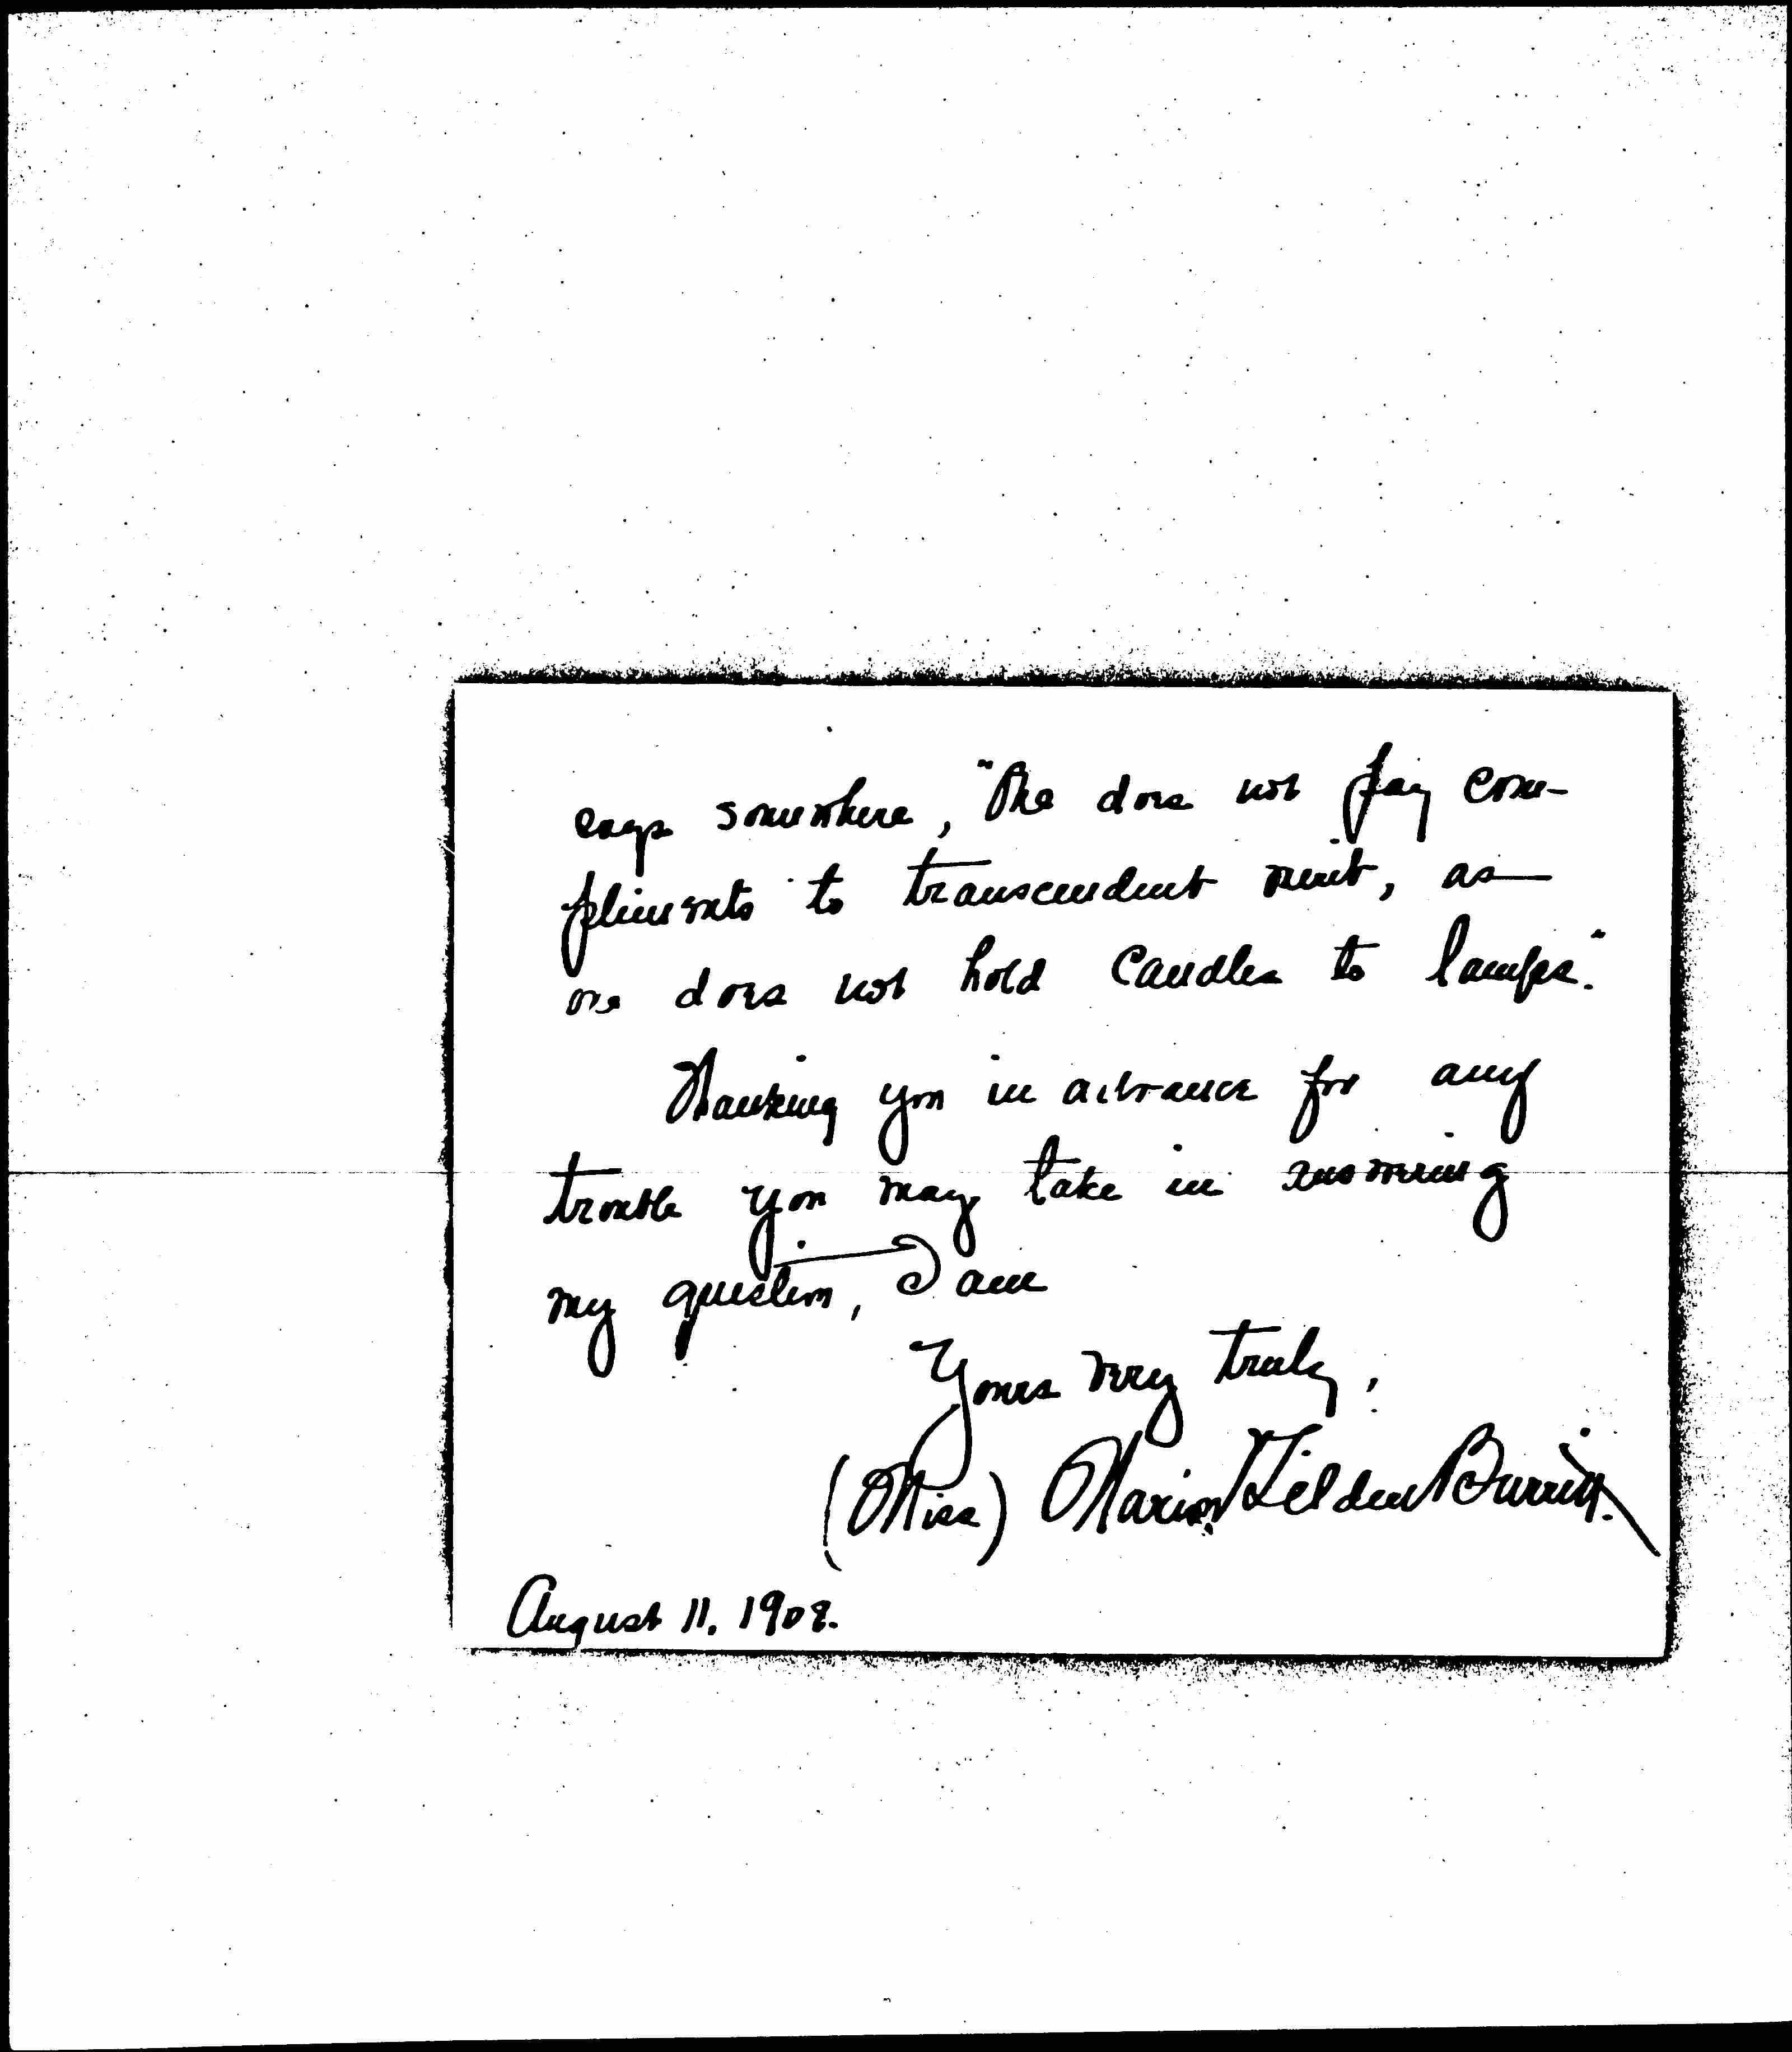 says somewhere, "One does not pay com-
pliments to transcendent merit, as
one does not hold candles to lamps."
Thanking you in advance for any
trouble you may take in answering
my question, I am
Yours very truly,
(Miss) Marion Tilden Burritt.
August 11. 1908.